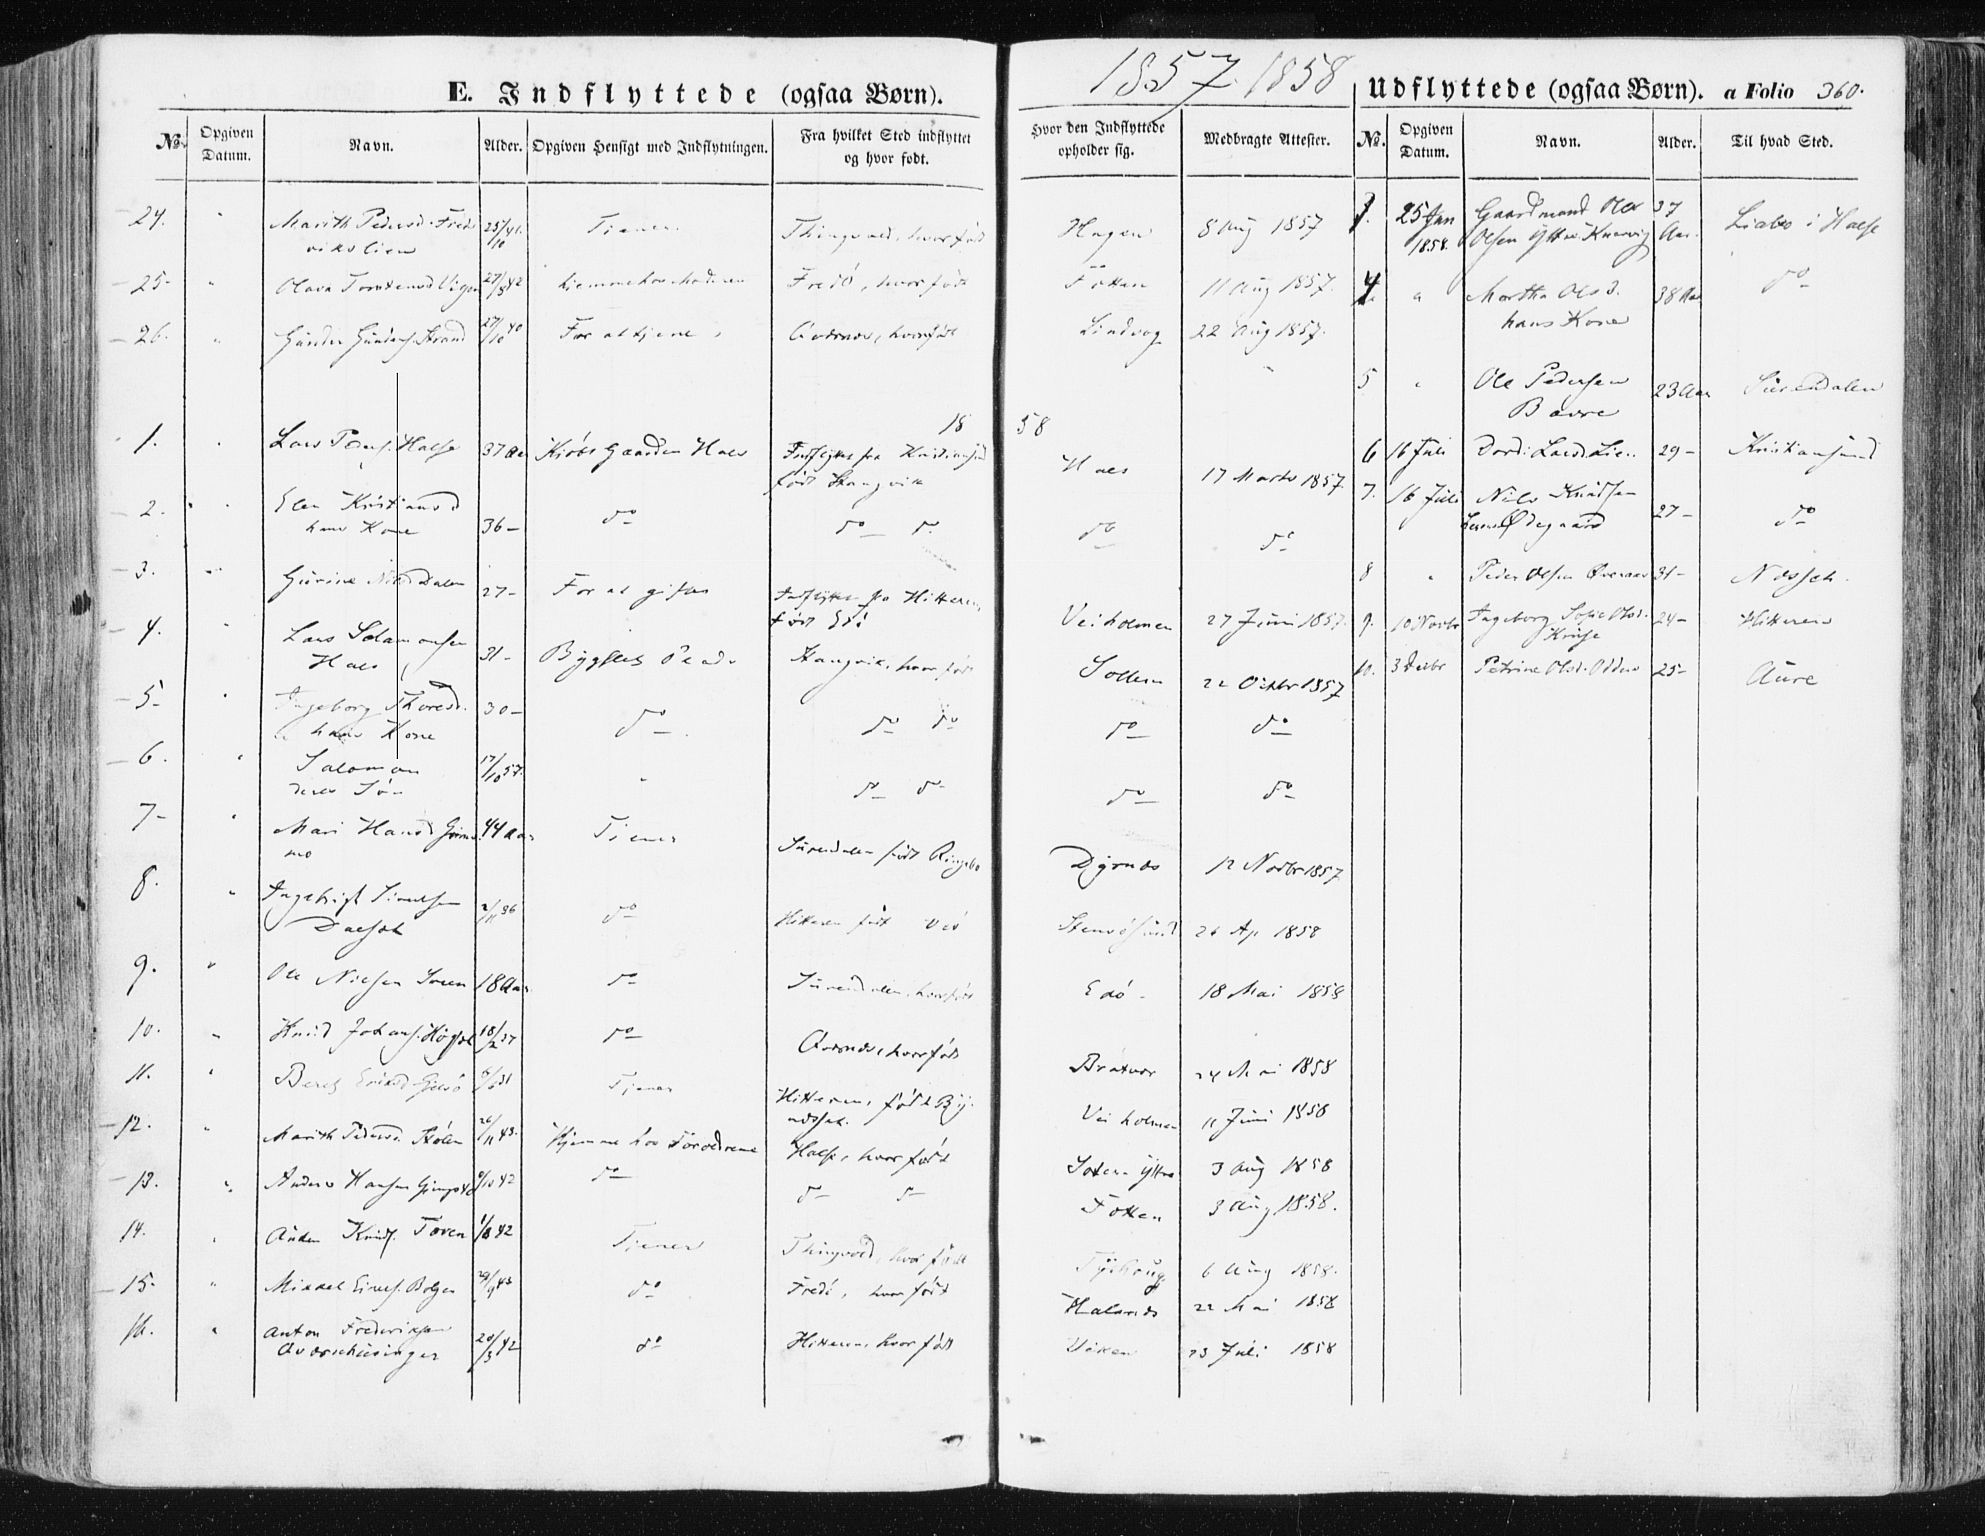 1857 1858
E. Indflyttede (ogsaa Børn).
Udflyttede (ogsaa Børn). a Folio 360.
No. Opgiven Datum. Navn. Alder. Opgiven Hensigt med Indflytningen. Fra hvilket Sted indflyttet og hvor født. Hvor den Indflyttede opholder sig. Medbragte Attester.
No. Opgiven Datum. Navn. Alder. Til hvad Sted.
24. " Marith Pedersd. Fredsvikslien 25/10 41. Tjener Thingvold, hvor født Hagen 8 Aug 1857
25. " Olava 27/8 42 hjemme hos Fredö, hvor født Fotten 11 Aug 1857.
26. " Gunder Strand 27/10 40 For at tjene Averøen, hvor født Lindvog 22 Aug 1857.
1858
1. " Lars Halse 37 Aar Kjöbt Gaarden Hals Indflyttet fra Kristiansund født Stangvik Hals 17 Marts 1857.
2. " Elen Kristiansd hans Kone 36- do do do do do
3. " Gurine Dalen 27- For at giftes Indflyttet fra Hitteren, født Edö Veiholmen 27 Juni 1857.
4. " Lars Salamonsen Hals 31- Bygslet Plads Stangvik, hvor født Sollien 22 Octbr 1857
5- " Ingeborg Thoresd. hans Kone 30- do do do do do
6. " Salomon deres Sön 17/10 57. " do do do do
7- " Mari Hansd 44 Aar Tjener Surendalen født Ringebo Dyrnes 12 Novbr 1857
8. " Ingebrigt Sivertsen 2/11 36 do Hitteren født Veö Stensösund 26 Ap 1858
9. " Ole Nielsen 18 Aar do Surendalen, hvor født Edö 18 Mai 1858
10. " Knud Johans. 18/2 37 do hvor født Bratvær 24 Mai 1858
11. " Berth Tjener Hitteren, født Veiholmen 11 Juni 1858
12. " Marith Pedersd. Stölen 26/11 43. Hjemme hos Forældrene Halse, hvor født Ytter 3 Aug 1858
13. " Anders Hansen 42 do do do Fotten 3 Aug 1858.
14. " Anders Knuds. Torven 1/8 42 Tjener Thingvold, hvor født 6 Aug 1858.
15- " Mikkel Bolgen 29/9 43 do Fredö, hvor født 22 Mai 1858
16. " Anton Frederiksen 20/3 42 do Hitteren, hvor født Viken 23 Juli 1858
3. 25 Jan 1858. Gaardmand Ole Olsen Ytre Knarvig 37 Aar. Liabø i Halse
4. " Martha Olsd. hans Kone 38 Aar do
5 " Ole Pedersen Bævre 23 Aar Surendalen
6 16 Juli Dordi Larsd. Lien 29- Kristiansund
7. 16 Juli Nils Knudsen Ødegaard 27- do
8 " Peder Olsen 31- Nesset.
9. 10 Novbr Ingeborg Sofie Olsd. 24- Hitteren
10. 3 Decbr Petrine Olsd. 25- Aure